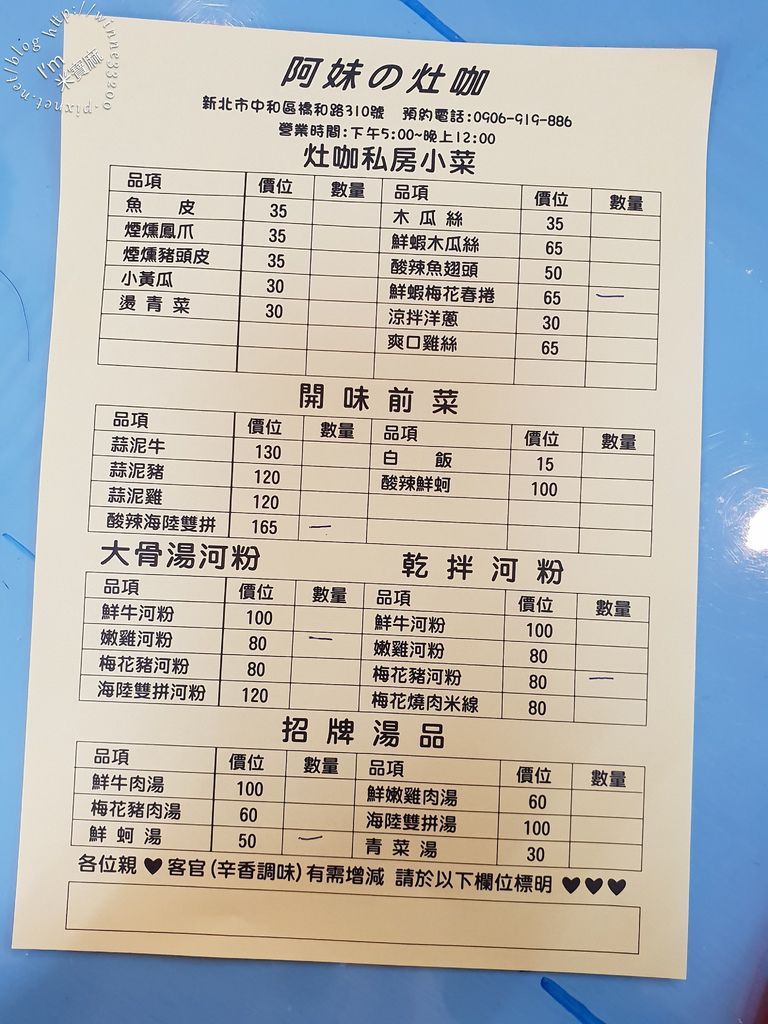 http://winnc33200.pixnet.net/blog
I'm
米寶麻
阿妹の灶咖
新北市中和區橋和路310號 預約電話:0906-919-886
營業時間:下午5:00~晚上12:00
灶咖私房小菜
品項 價位 數量 品項 價位 數量
魚 皮 35 木 瓜 絲 35
煙燻鳳爪 35 鮮蝦木瓜絲 65
煙燻豬頭皮 35 酸辣魚翅頭 50
小黃瓜 30 鮮蝦梅花春捲 65 一
燙 青 菜 30 涼拌洋蔥 30
爽口雞絲 65
開 味 前 菜
品項 價位 數量 品項 價位 數量
蒜泥牛 130 白 飯 15
蒜泥豬 120 酸辣鮮蚵 100
蒜泥雞 120
酸辣海陸雙拼 165 一
大骨湯河粉 乾 拌 河 粉
品項 價位 數量 品項 價位 數量
鮮牛河粉 100 鮮牛河粉 100
嫩雞河粉 80 一 嫩雞河粉 80
梅花豬河粉 80 梅花豬河粉 80 一
海陸雙拼河粉 120 梅花燒肉米線 80
招 牌 湯 品
品項 價位 數量 品項 價位 數量
鮮牛肉湯 100 鮮嫩雞肉湯 60
梅花豬肉湯 60 海陸雙拼湯 100
鮮 蚵 湯 50 一 青 菜 湯 30
各位親♥客官(辛香調味)有需增減 請於以下欄位標明♥♥♥